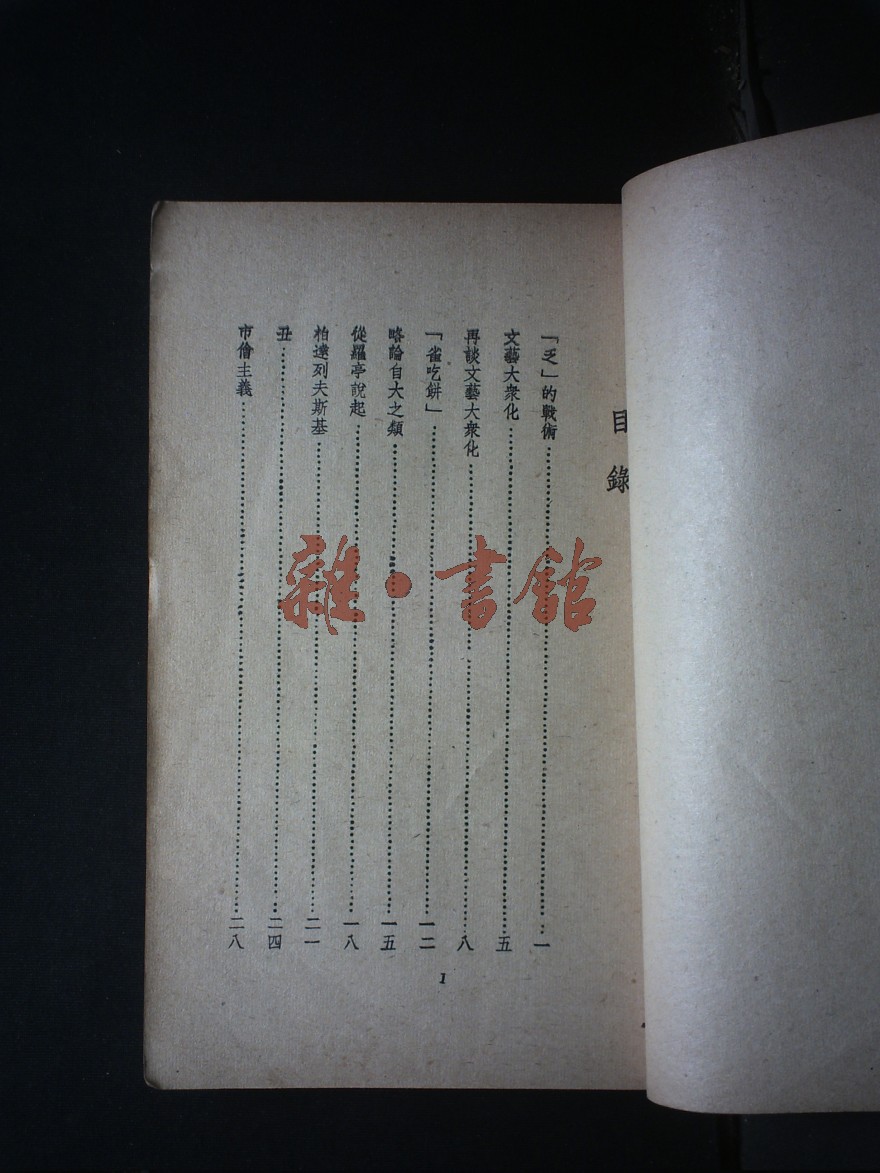 目錄
「乏」的戰術……一
文藝大衆化……五
再談文藝大衆化……八
「雀吃餅」……一二
略論自大之類……一五
從羅亭說起……一八
柏達列夫斯基……二一
丑……二四
市儈主義……二八
1
雜·書館